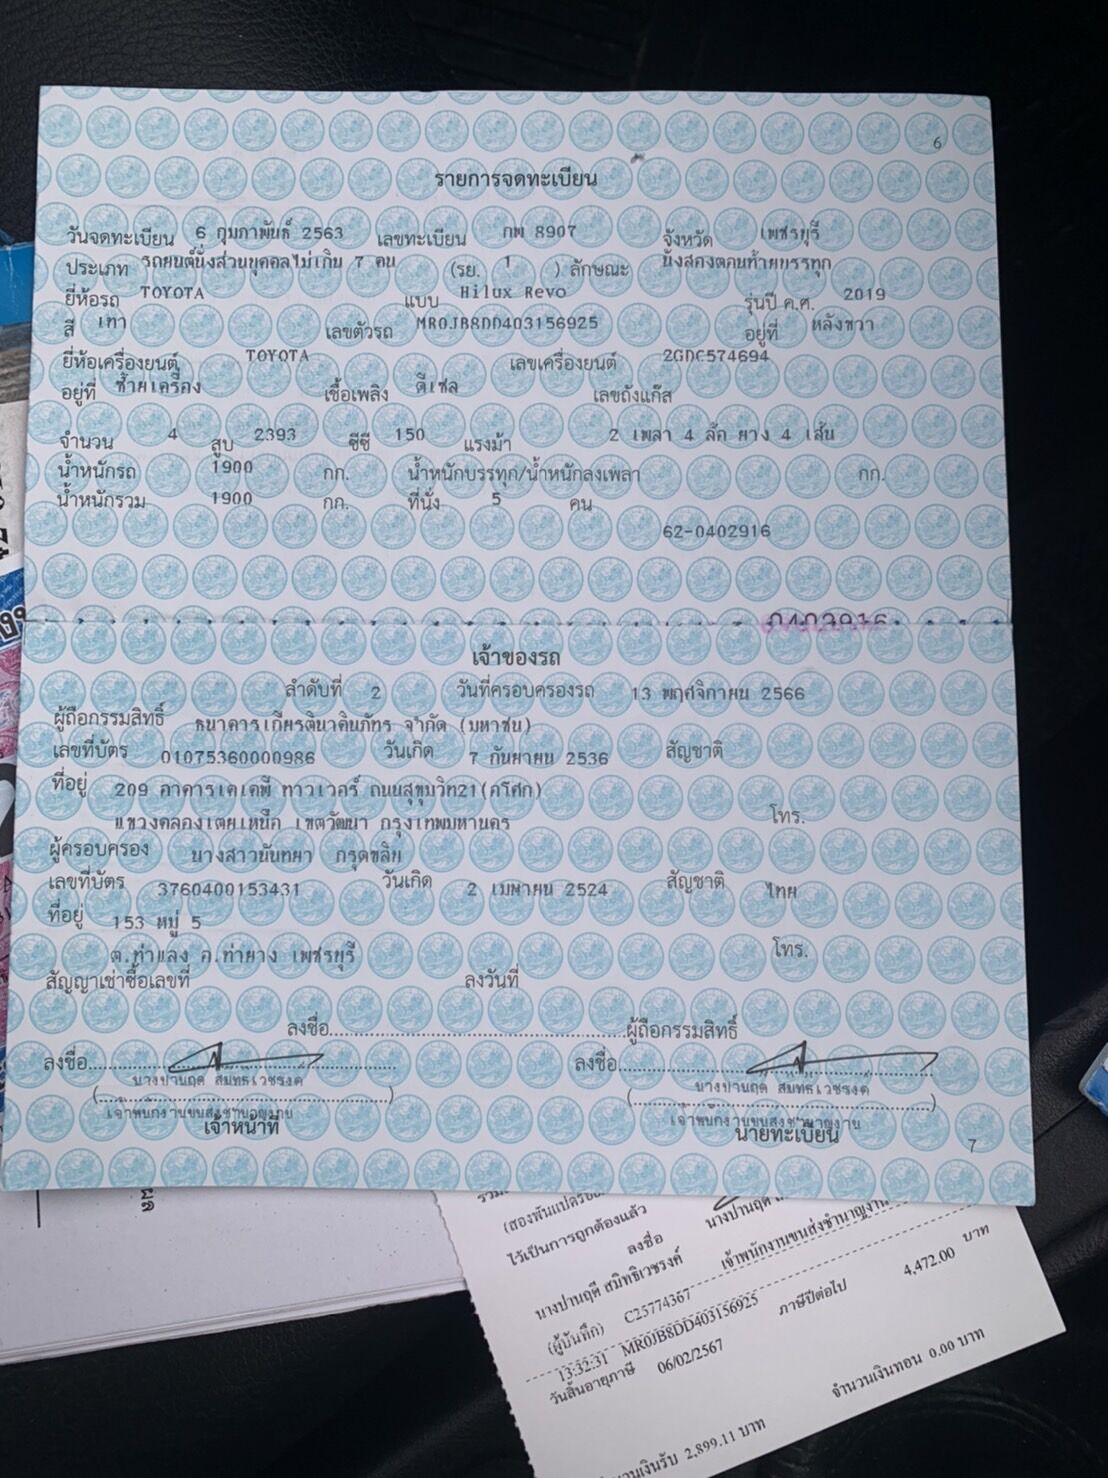 6
รายการจดทะเบียน
วันจดทะเบียน 6 กุมภาพันธ์ 2563 เลขทะเบียน กพ 8907 จังหวัด เพชรบุรี
ประเภท รถยนต์นั่งส่วนบุคคลไม่เกิน 7 คน (รย. 1 ) ลักษณะ นั่งสองตอนท้ายบรรทุก
ยี่ห้อรถ TOYOTA แบบ Hilux Revo รุ่นปี ค.ศ. 2019
สี เทา เลขตัวรถ MR0JB8DD403156925 อยู่ที่ หลังขวา
ยี่ห้อเครื่องยนต์ TOYOTA เลขเครื่องยนต์ 2GDC574694
อยู่ที่ ซ้ายเครื่อง เชื้อเพลิง ดีเซล เลขถังแก๊ส
จำนวน 4 สูบ 2393 ซีซี 150 แรงม้า 2 เพลา 4 ล้อ ยาง 4 เส้น
น้ำหนักรถ 1900 กก. น้ำหนักบรรทุก/น้ำหนักลงเพลา กก.
น้ำหนักรวม 1900 กก. ที่นั่ง 5 คน
62-0402916
0402916
เจ้าของรถ
ลำดับที่ 2 วันที่ครอบครองรถ 13 พฤศจิกายน 2566
ผู้ถือกรรมสิทธิ์ ธนาคารเกียรตินาคินภัทร จำกัด (มหาชน)
เลขที่บัตร 01075360000986 วันเกิด 7 กันยายน 2536 สัญชาติ
ที่อยู่ 209 อาคารเคเคพี ทาวเวอร์ ถนนสุขุมวิท21(อโศก)
แขวงคลองเตยเหนือ เขตวัฒนา กรุงเทพมหานคร โทร.
ผู้ครอบครอง นางสาวนันทยา กรุดขลิบ
เลขที่บัตร 3760400153431 วันเกิด 2 เมษายน 2524 สัญชาติ ไทย
ที่อยู่ 153 หมู่ 5
ต.ท่าแลง อ.ท่ายาง เพชรบุรี โทร.
สัญญาเช่าซื้อเลขที่ ลงวันที่
ลงชื่อ ผู้ถือกรรมสิทธิ์
ลงชื่อ ลงชื่อ
นางปานฤดี สมิทธิเวชรงค์ นางปานฤดี สมิทธิเวชรงค์
เจ้าพนักงานขนส่งชำนาญงาน เจ้าพนักงานขนส่งชำนาญงาน
เจ้าหน้าที่ นายทะเบียน
7
ไว้เป็นการถูกต้องแล้ว
ลงชื่อ
นางปานฤดี สมิทธิเวชรงค์ เจ้าพนักงานขนส่งชำนาญงาน
(ผู้บันทึก) C25774367
13:32:31 MR0JB8DD403156925 ภาษีปีต่อไป 4,472.00 บาท
วันสิ้นอายุภาษี 06/02/2567
จำนวนเงินรับ 2,899.11 บาท จำนวนเงินทอน 0.00 บาท